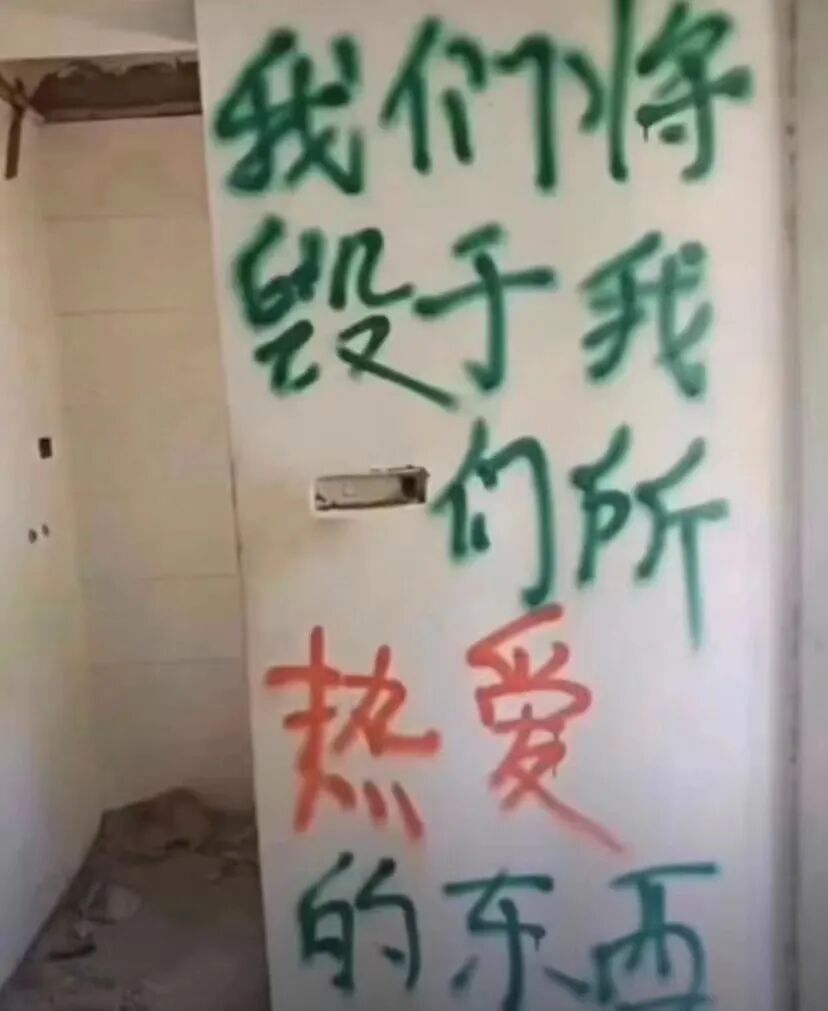 我们将
毁于我
们所
热爱
的东西